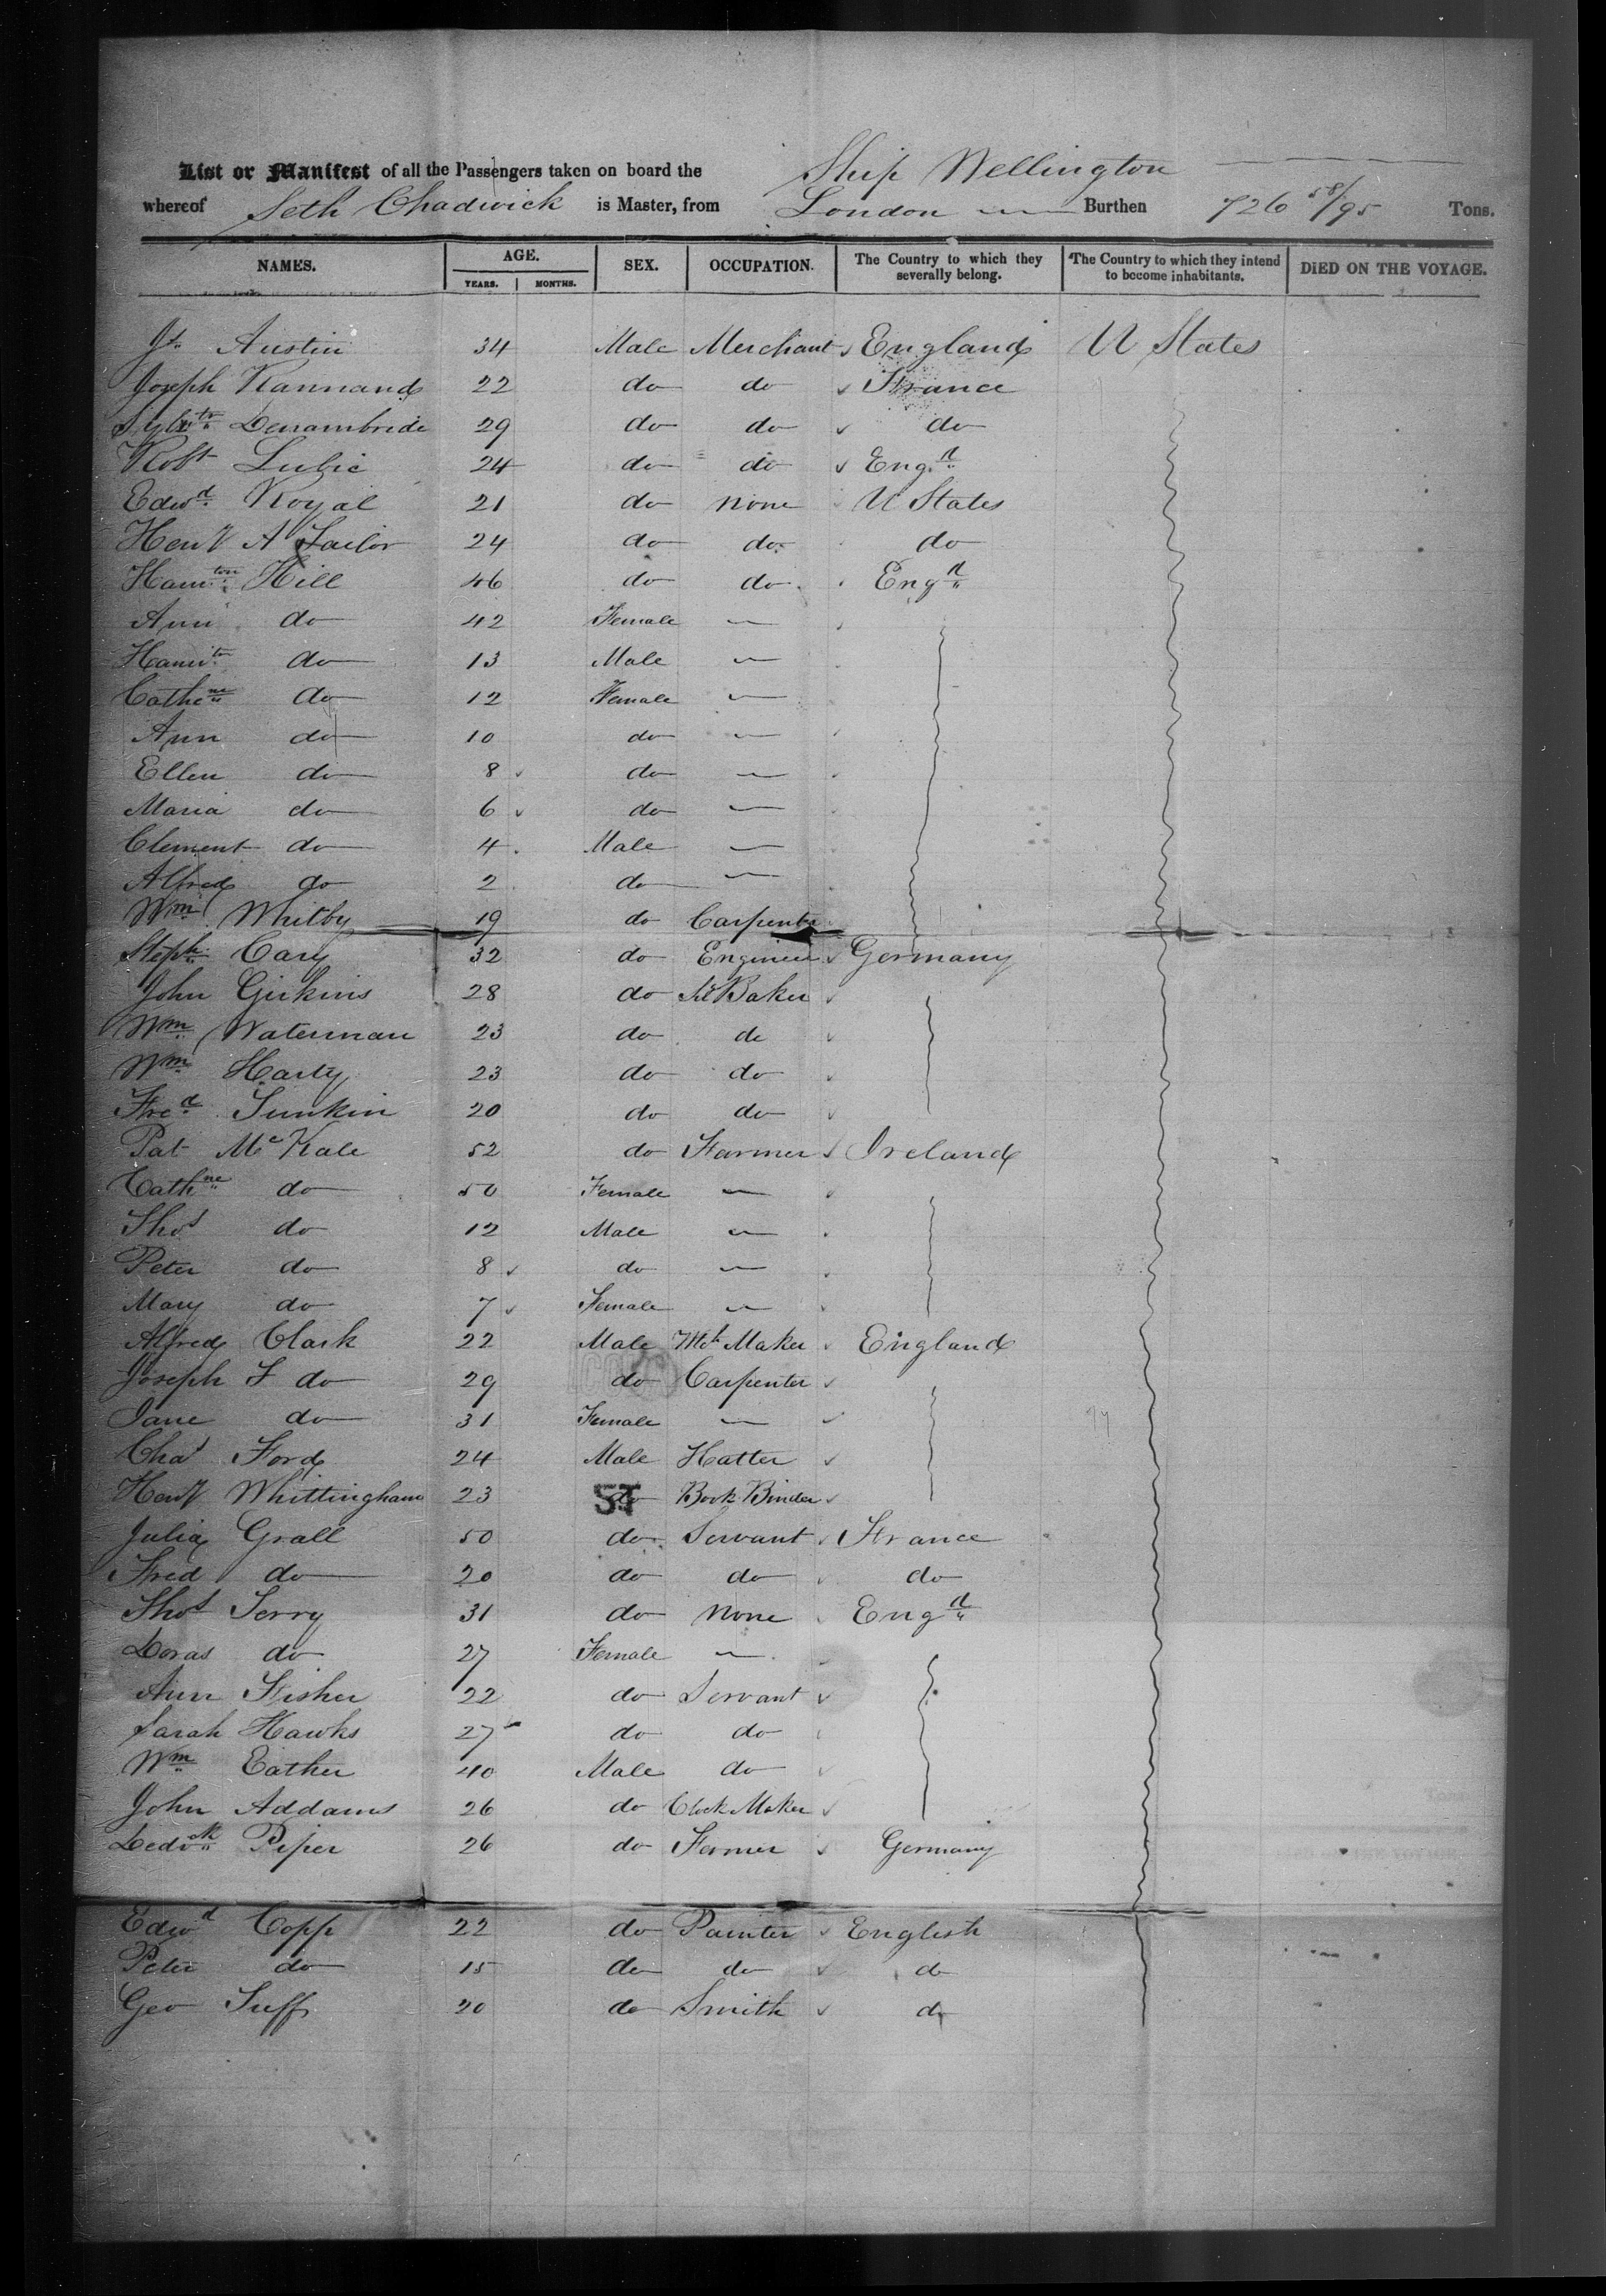 List or Manifest of all the Passengers taken on board the Ship Wellington
whereof Seth Chadwick is Master, from London Burthen 726 58/95 Tons.
NAMES. AGE. SEX. OCCUPATION. The Country to which they severally belong. The Country to which they intend to become inhabitants. DIED ON THE VOYAGE.
YEARS. MONTHS.
Js. Austin 34 Male Merchant England U States
Joseph Kannand 22 do do France
29 do do do
Robt 24 do do Engd
Edwd Royal 21 do none U States
Heny A Tailor 24 do do do
Hamton Hill 46 do do Engd
Ann do 42 Female —
Hamtn do 13 Male —
Cathne do 12 Female —
Ann do 10 do —
Ellen do 8 do —
Maria do 6 do —
Clement do 4 Male —
Alfred do 2 do —
Wm Whitby 19 do Carpenter
Steph Cary 32 do Engineer Germany
John Girkins 28 do Baker
Wm Waterman 23 do do
Wm Harty 23 do do
Fred Tunkin 20 do do
Pat McKale 52 do Farmer Ireland
Cathne do 50 Female —
Thos do 12 Male —
Peter do 8 do —
Mary do 7 Female —
Alfred Clark 22 Male Maker England
Joseph F do 29 do Carpenter
Jane do 31 Female —
Chas Ford 24 Male Hatter
Heny Whittingham 23 do Book Binder
ST
Julia Grall 50 do Servant France
Fred do 20 do do do
Thos Terry 31 do none Engd
Doras do 27 Female —
Ann Fisher 22 do Servant
Sarah Hawks 27 do do
Wm Eather 40 Male do
John Addams 26 do Clock Maker
Piper 26 do Farmer Germany
Edwd Copp 22 do Painter English
Peter do 15 do do do
Geo Tuff 20 do Smith do